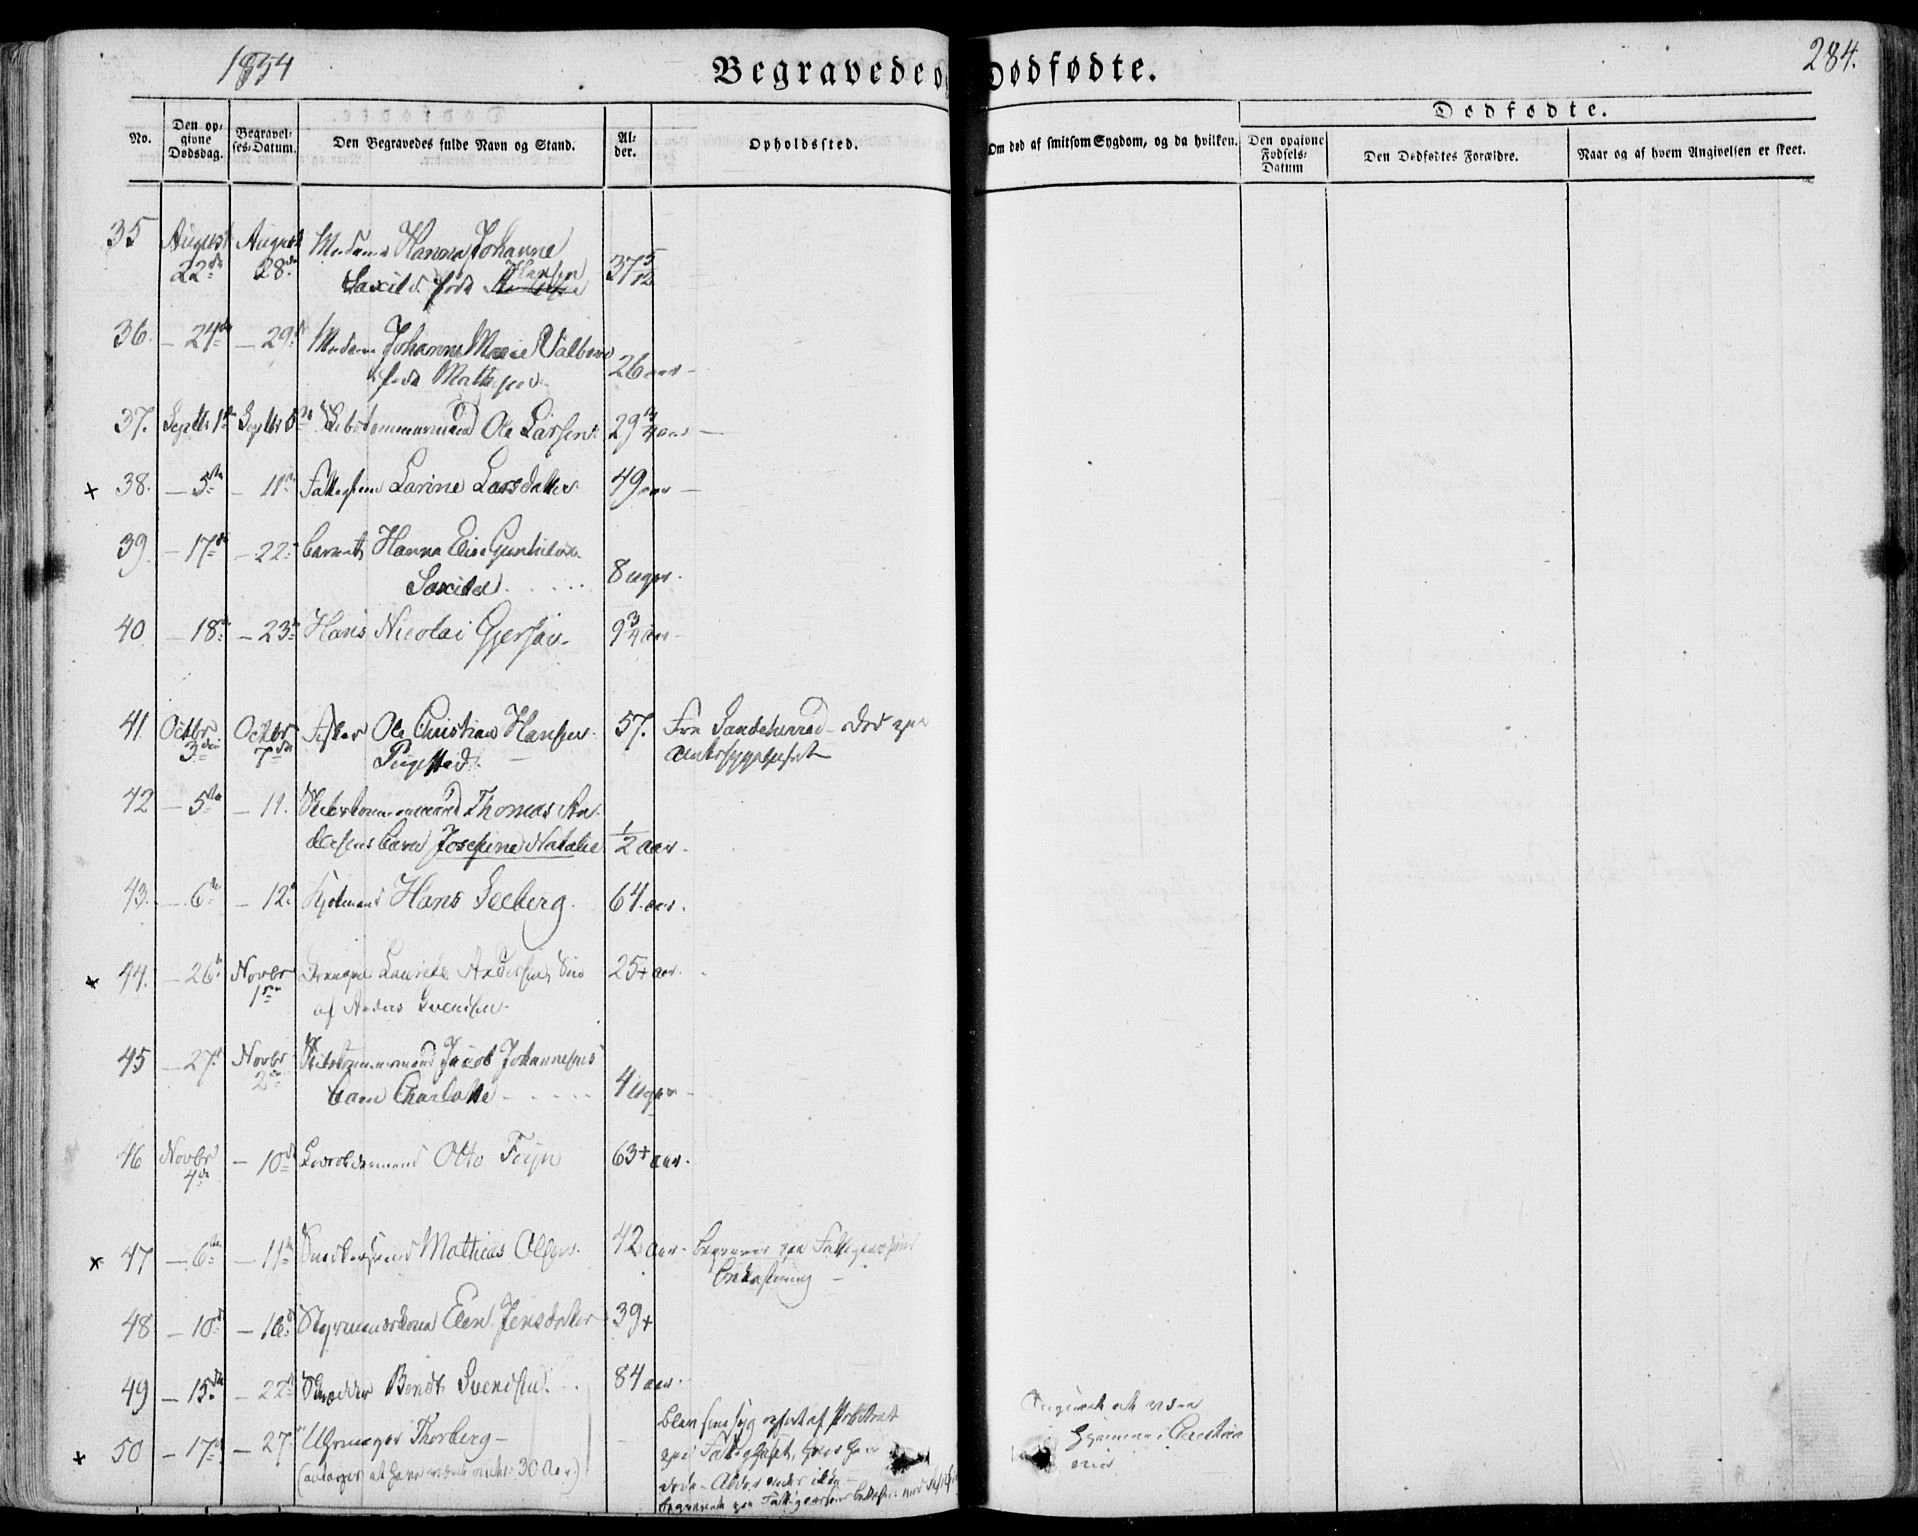 1854
Begravede og Dødfødte.
284.
No.
Den opgivne Dødsdag.
Begravelses-Datum.
Den Begravedes fulde Navn og Stand.
Alder.
Opholdssted.
Om død af smitsom Sygdom, og da hvilken.
Dødfødte.
Den opgivne Fødsels-Datum
Den Dødfødtes Forældre.
Naar og af hvem Angivelsen er skeet.
35 August 22de August 28de Madame Hanna Johanne
Saxild født Hansen 37 5/12
36. – 24de – 29. Madame Johanne Marie
født 26 aar –
37. Septbr 1 Septbr Skibstømmermand Ole Larsen 29 3/4 aar –
× 38. – 5te – 11te Larine Larsdatter 49 aar –
39. – 17de – 22 barnet Hanna Elise
Saxild 8 uger.
40 – 18de – 23de Hans Nicolai 9 3/4 aar –
41. Octbr 3die Octbr 7de Fisker Ole Christian Hansen 57. Fra Sandeherred – død paa
Amtssygehuset
42 – 5te – 11. Skibstømmermand Thomas An-
dersens barn Josefine Natalie 1/2 aar –
43. – 6te – 12te Hans Seeberg. 64. aar.
× 44. – 26de Novbr 1ste Laurits Andersen, Søn 25+ aar.
af Anders Svendsen
45 – 27de Novbr 2den Skibstømmermand Jacob Johannesens
barn Charlotte 4 uger –
46 Novbr 4de – 10de Otto 63+ aar.
× 47 – 6te – 11te Mathias Olsen. 42 aar – begravet paa Fattigvæsenets
bekostning –
48 – 10de – 16de Styrmandskone Elen Jensdatter 39+
49 – 15de – 22de Skrædder Bendt Svendsen. 84 aar.
× 50 – 17de – 27de Uhrmager Thorberg –
(antages at have været omtr: 30 Aar)
blev syg af
paa Fattighuset, hvor han
døde – Alder ikke –
begravet paa Fattigvæsenets
at være
hjemme i Christia
nia